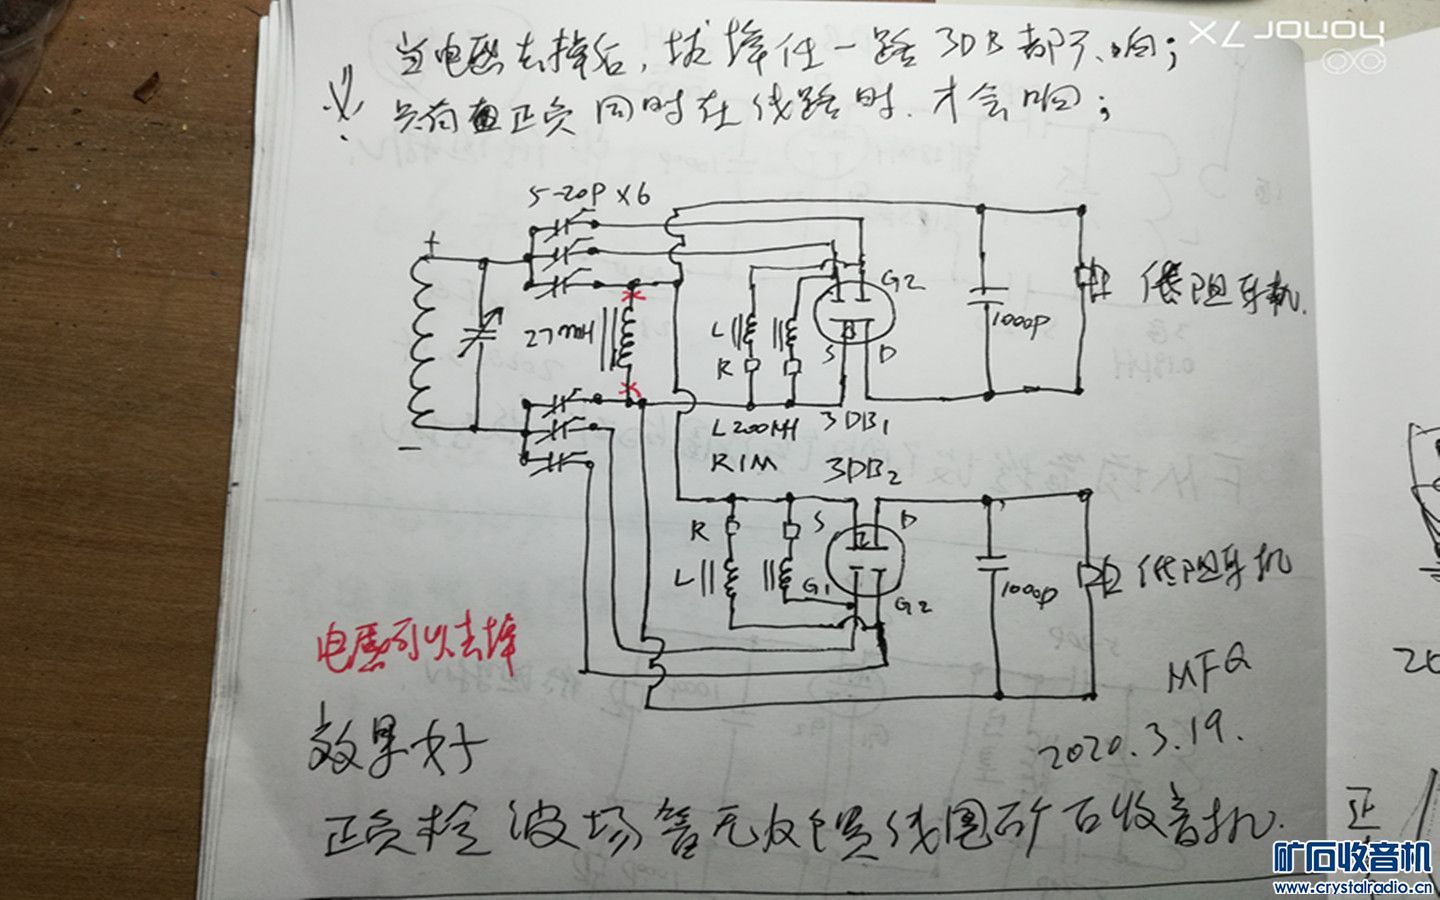 当电感去掉后,拔掉任一路3DB都不响;
负荷 正负同时在线路时.才会响;
honor 7X
5-20P X6
+
G2
低阻耳机.
27mH
L
1000P
R
S
D
-
L200MH
3DB1
R1M
3DB2
R
S
D
L
G1
G2
1000P
低阻耳机
电感可以去掉
MFQ
效果好
2020.3.19.
正负检波场管无反馈线圈矿石收音机.
正
矿石收音机
www.crystalradio.cn